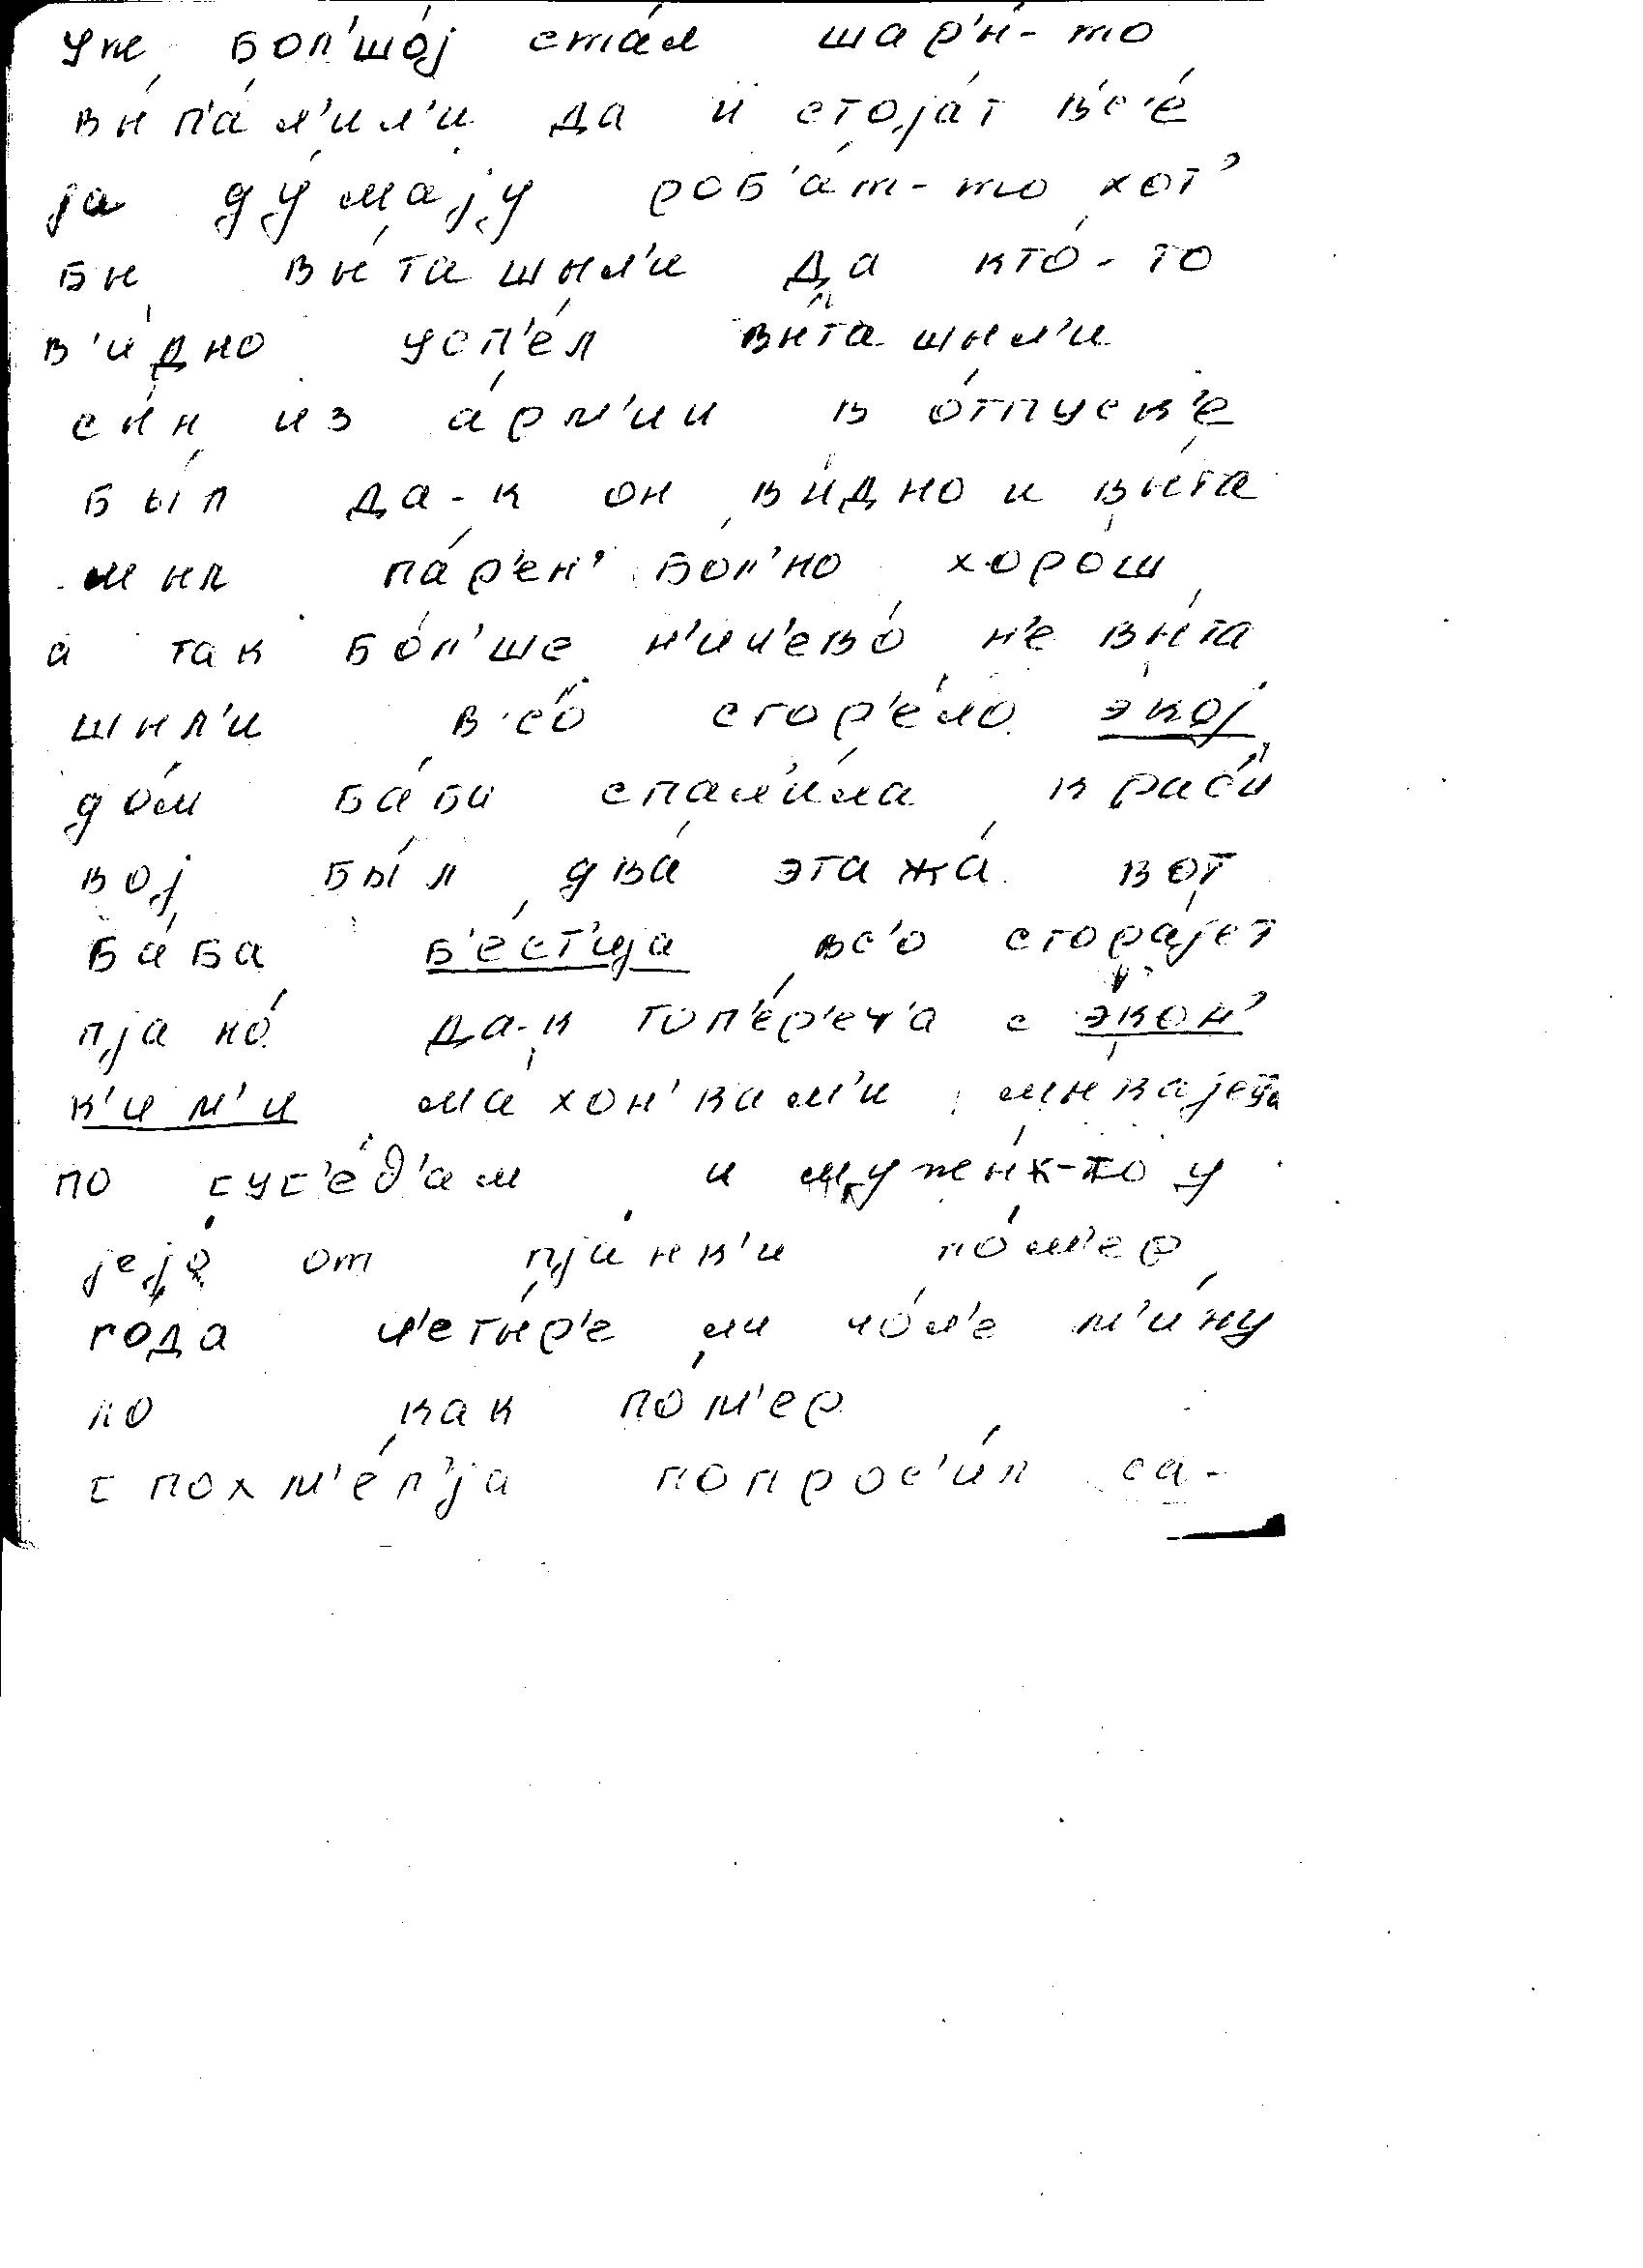 уже бол'шо́ј ста́л шар'и́-то
вы́п'а́л'ил'и да и стоја́т в'с'е́
ја ду́мају роб'а́т-то хот'
бы вы́ташыл'и да кто́-то
в'и́дно усп'е́л вы́ташыл'и
сы́н из а́рм'ии в о́тпуск'е
бы́л да-к он в'и́дно и вы́та
шыл па́р'ен' бол'но хоро́ш
а так бо́л'ше н'ич'ево́ н'е вы́та
шыл'и в'с'о́ сгор'е́ло э́кој
до́м ба́ба спал'и́ла крас'и́
вој бы́л два́ этажа́ вот
ба́ба б'е́ст'ија вс'о сгора́јет
пјано́ да-к топ'е́р'еч'а с э́кон'
к'им'и ма́хон'кам'и мы́кајетца
по сус'е́д'ам и мужы́к-то у
јејо́ от пја́нк'и по́м'ер
года ч'еты́р'е ли чо́л'е м'и́ну
ло как по́м'ер
с похм'е́л'ја попрос'и́л са-